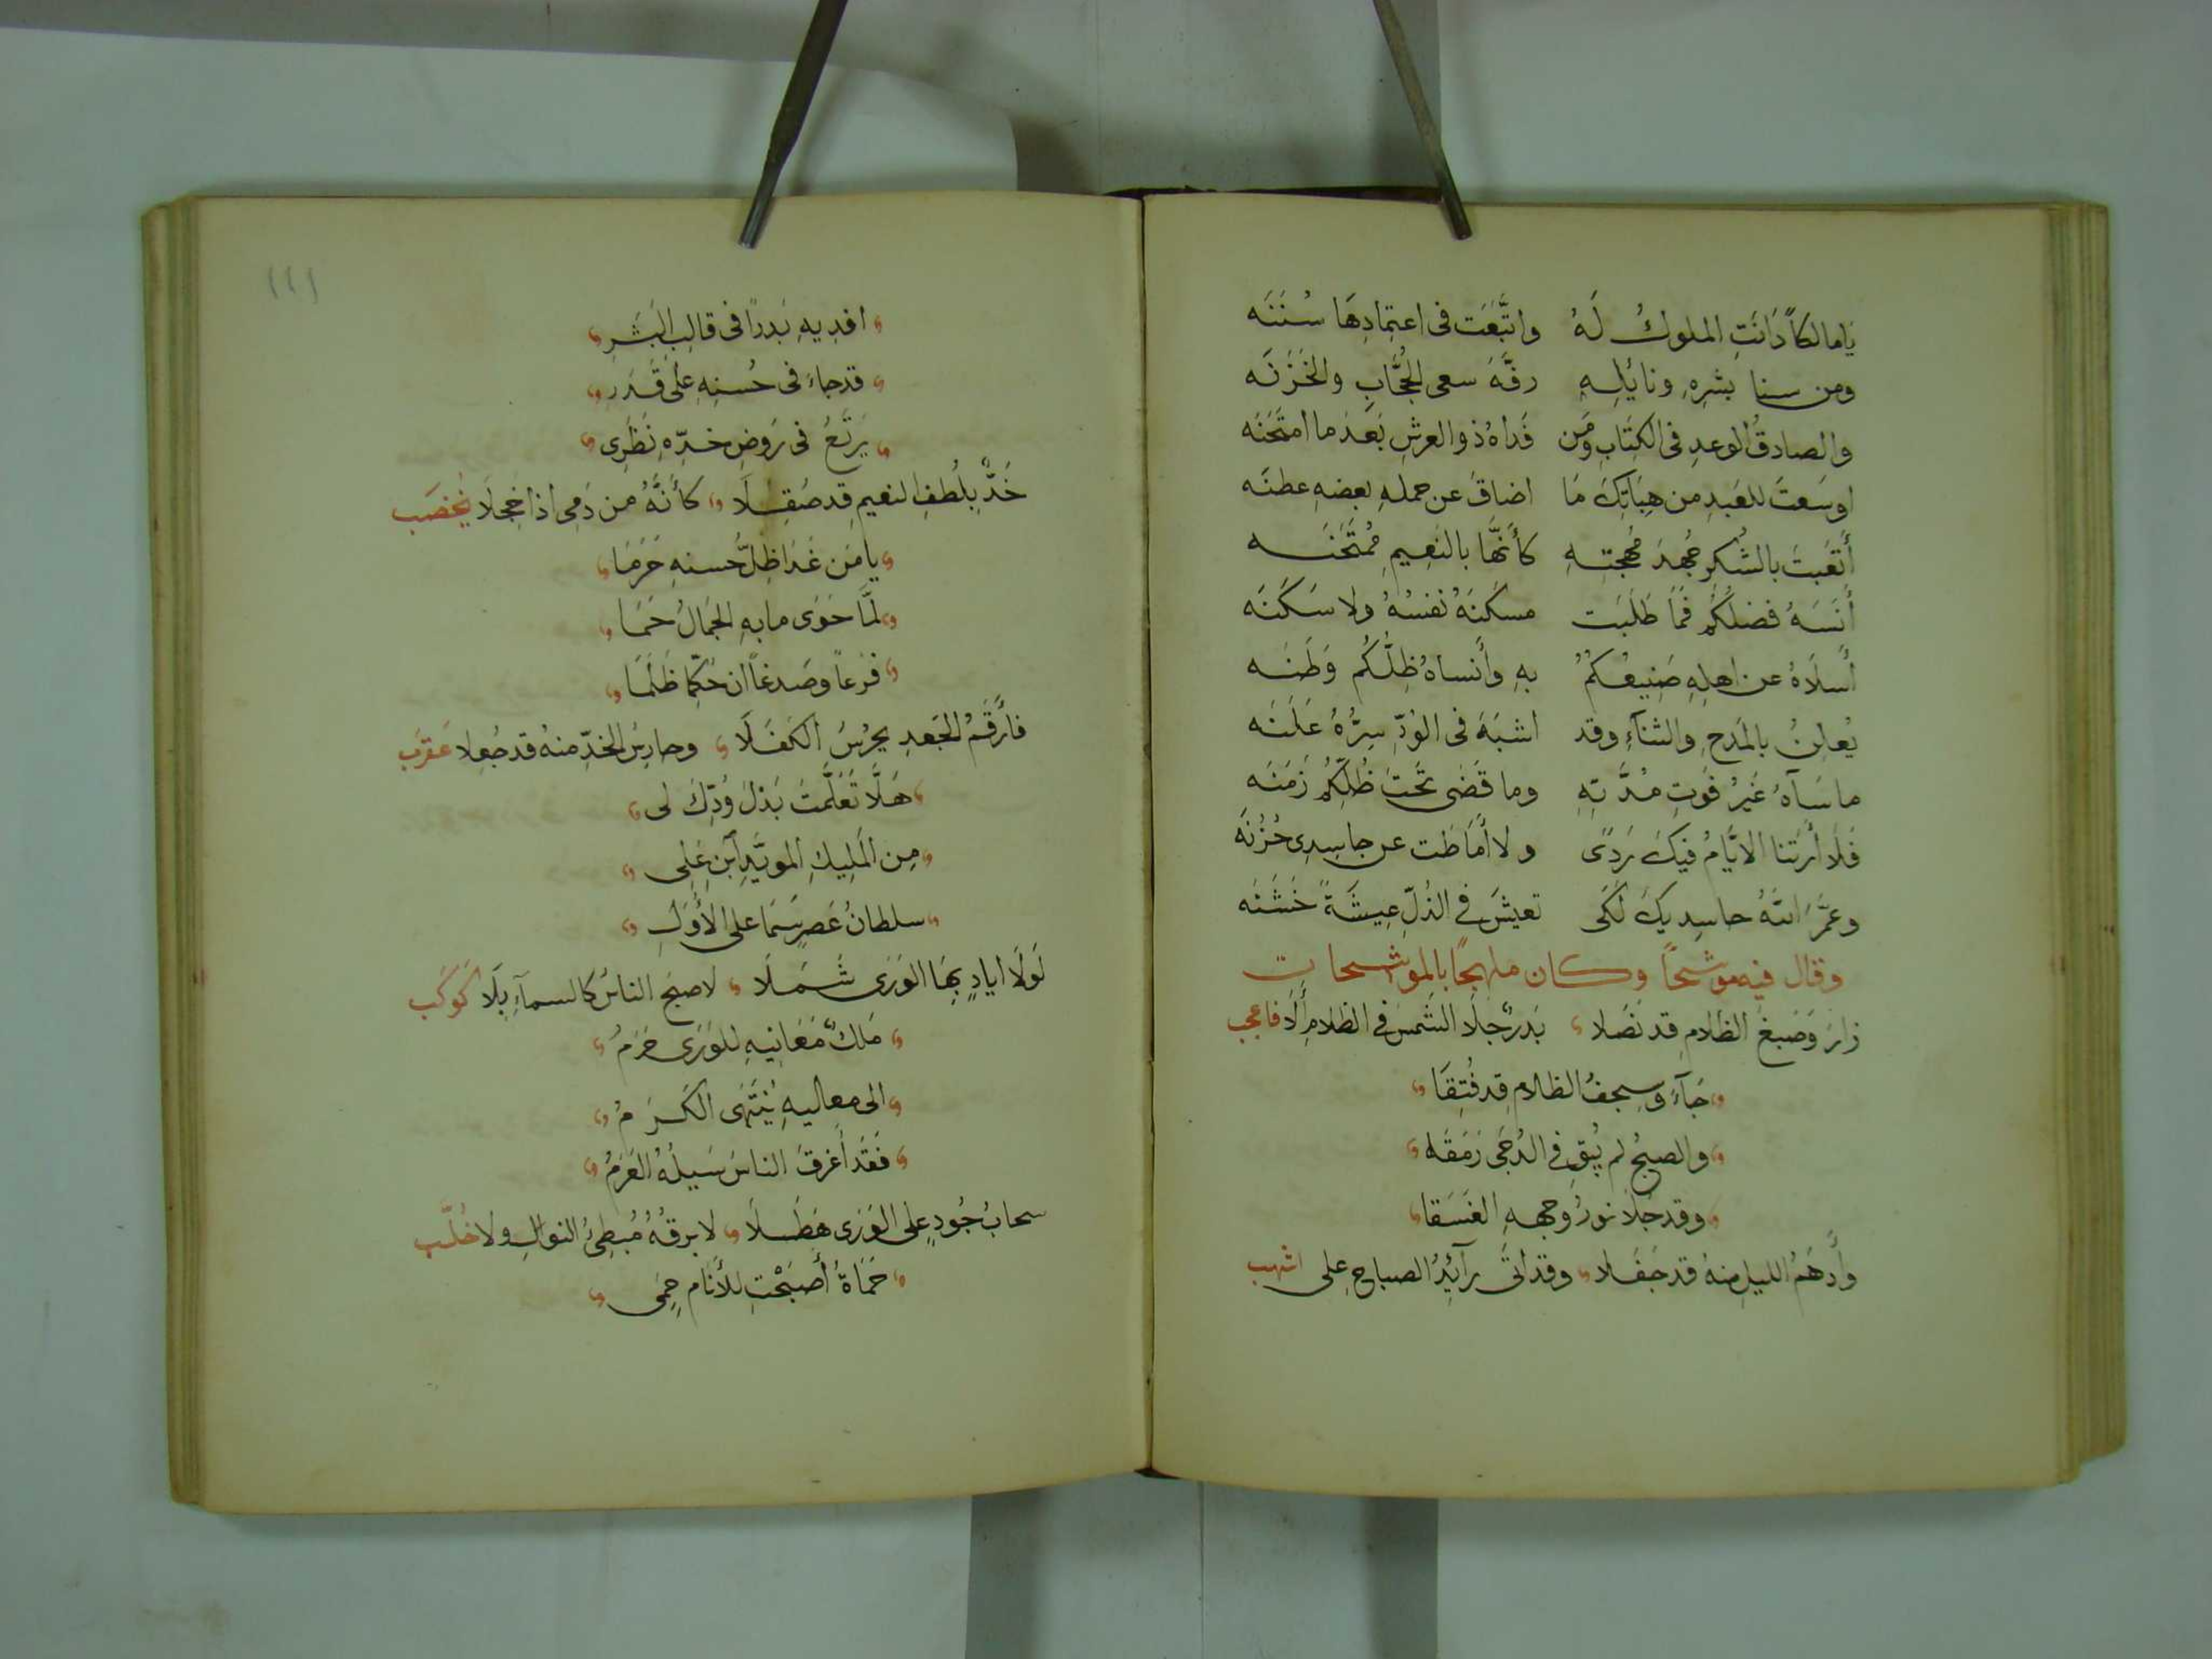 يَا مالكاً دَانَتِ الملوكُ لَهُ واتَّبَعَت فى اعتِمادِهَا سُنَنَه
ومن سنا بشرِهِ ونائِلِهِ رفَّهَ سعى الحُجَّابِ والخَزَنَه
والصادقُ الوعدِ فى الكِتَابِ ومَن فَداهُ ذو العرشِ بَعَدَما امتَحَنَه
اوسَعتَ للعَبدِ من هِبَاتِكَ مَا اضاقَ عن حملهِ بعضهِ عطنَه
أَتعَبتَ بالشُكرِ جُهدَ مُهجتِهِ كأَنَّها بالنَعِيمِ مُمتَحَنَه
أَنسَهُ فضلُكُم فَمَا طَلَبَت مسكَنَهُ نَفسُهُ ولا سَكَنَه
أَسلَاهُ عن اهلِهِ صَنِيعُكُمُ بهِ وأَنساهُ ظِلُّكُم وَطَنَه
يُعلِنُ بالمَدحِ والثنآءِ وقد اشبَهَ فى الوُدِّ سِرُّهُ عَلَنَه
ما سَآهُ غَيرُ فَوتِ مُدَّتِهِ وما قَضَى تَحتَ ظُلِّكُم زَمَنَه
فَلَا أَرَتنا الايَّامُ فيكَ رَدًى ولا أَمَاطَت عن حاسِدِى حُزنَه
وعَمَّرَ اللهُ حاسِدِيكَ لكَى تعيشَ فى الذُلِّ عِيشَةً خَشَنَه
وقال فيه موشحًا وكان ملهجًا بالموشحات
زارَ وَصَبغُ الظَلامِ قد نَصَلا بَدرٌ جَلَا الشَمسَ فى الظلامِ أَلَا فاعجب
جَآءَ وسِجفُ الظلامِ قد فُتِقَا
والصبحُ لم يُبقِ فى الدُجَى رَمَقَا
وقد جَلَا نورُ وجههِ الغَسَقا
وأَدهَمُ الليلِ منهُ قد جَفَلا وقد أتَى رآئِدُ الصباحِ على اشهب
١٤١
افدِيهِ بَدراً فى قالِبِ البَشَرِ
قد جاءَ فى حُسنِهِ على قَدَرِ
يَرتَعُ فى رَوضِ خدِّهِ نَظَرِى
خَدٌّ بِلُطفِ النعيمِ قد صُقِلَا كأَنَّهُ من دَمِى اذا خجِلَا يُخضَب
يا مَن غَدَا ظِلُّ حُسنهِ حَرَمَا
لمَّا حَوَى ما بهِ الجَمَالُ حَمَا
فَرعاً وصَدغاً ان حُكِّمَا ظَلَمَا
فارقَمُ الجَعدِ يحرُسُ الكَفَلَا وحارِسُ الخَدِّ منهُ قد جُعِلا عَقرَب
هَلَّا تَعَلَّمتَ بَذلَ وُدِّكَ لى
مِن المَلِيكِ المويَّدِ ابنِ عَلِى
سلطانُ عَصرٍ سَمَا على الأُوَلِ
لَولَا ايادٍ بِهَا الوَرَى شَمَلَا لاصبَحَ الناسُ كالسمآءِ بِلَا كَوكَب
مَلكٌ مَغَانِيهِ للوَرَى حَرَمُ
الى معاليهِ يَنتَهَى الكَرَمُ
فَقَد أغرَقَ الناسَ سَيلُهُ العَرِمُ
سحابُ جُودٍ على الوَرَى هَطَلَا لا برقُهُ مُبطِئُ النوَالِ ولا خُلَّب
حَمَاةُ أَصبَحْتِ للأنَامِ حِمَى